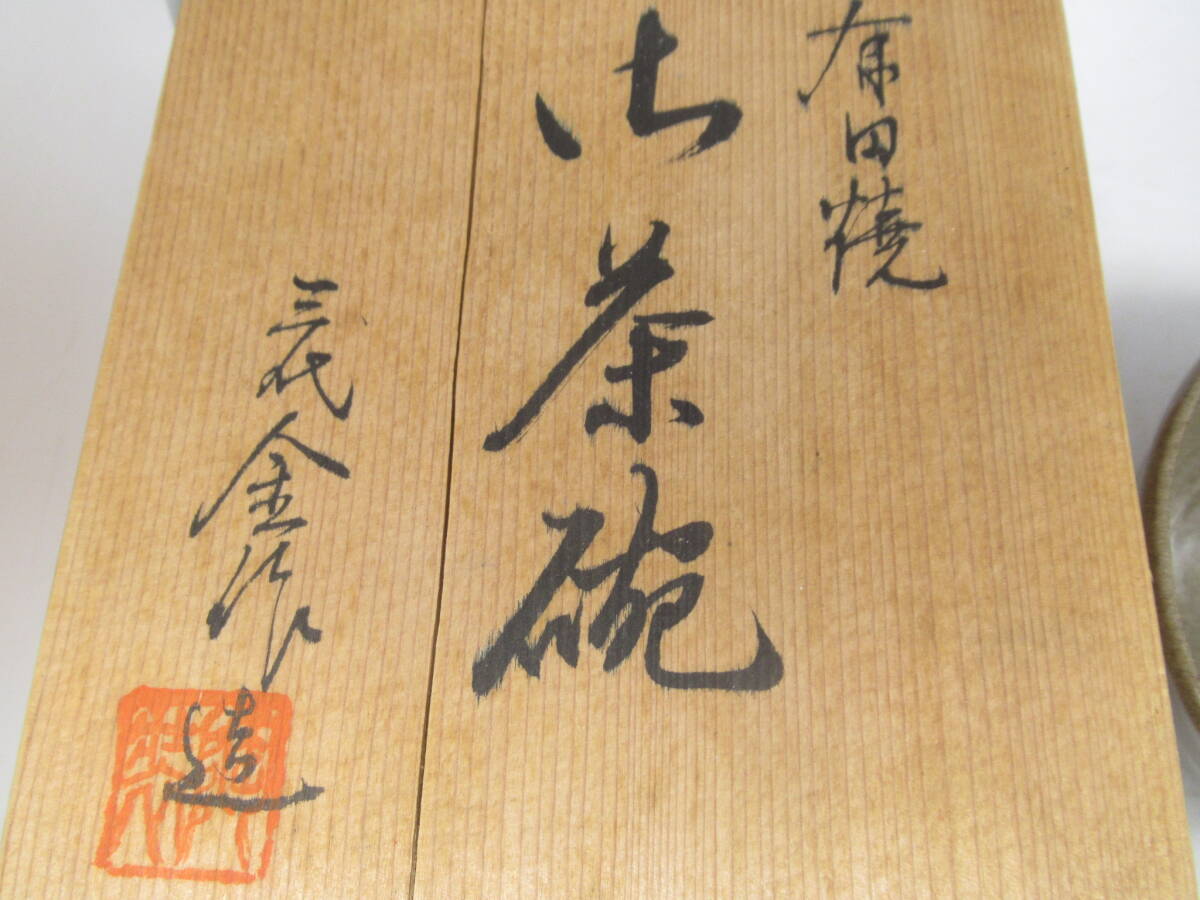 有田焼
御茶碗
三代金作造